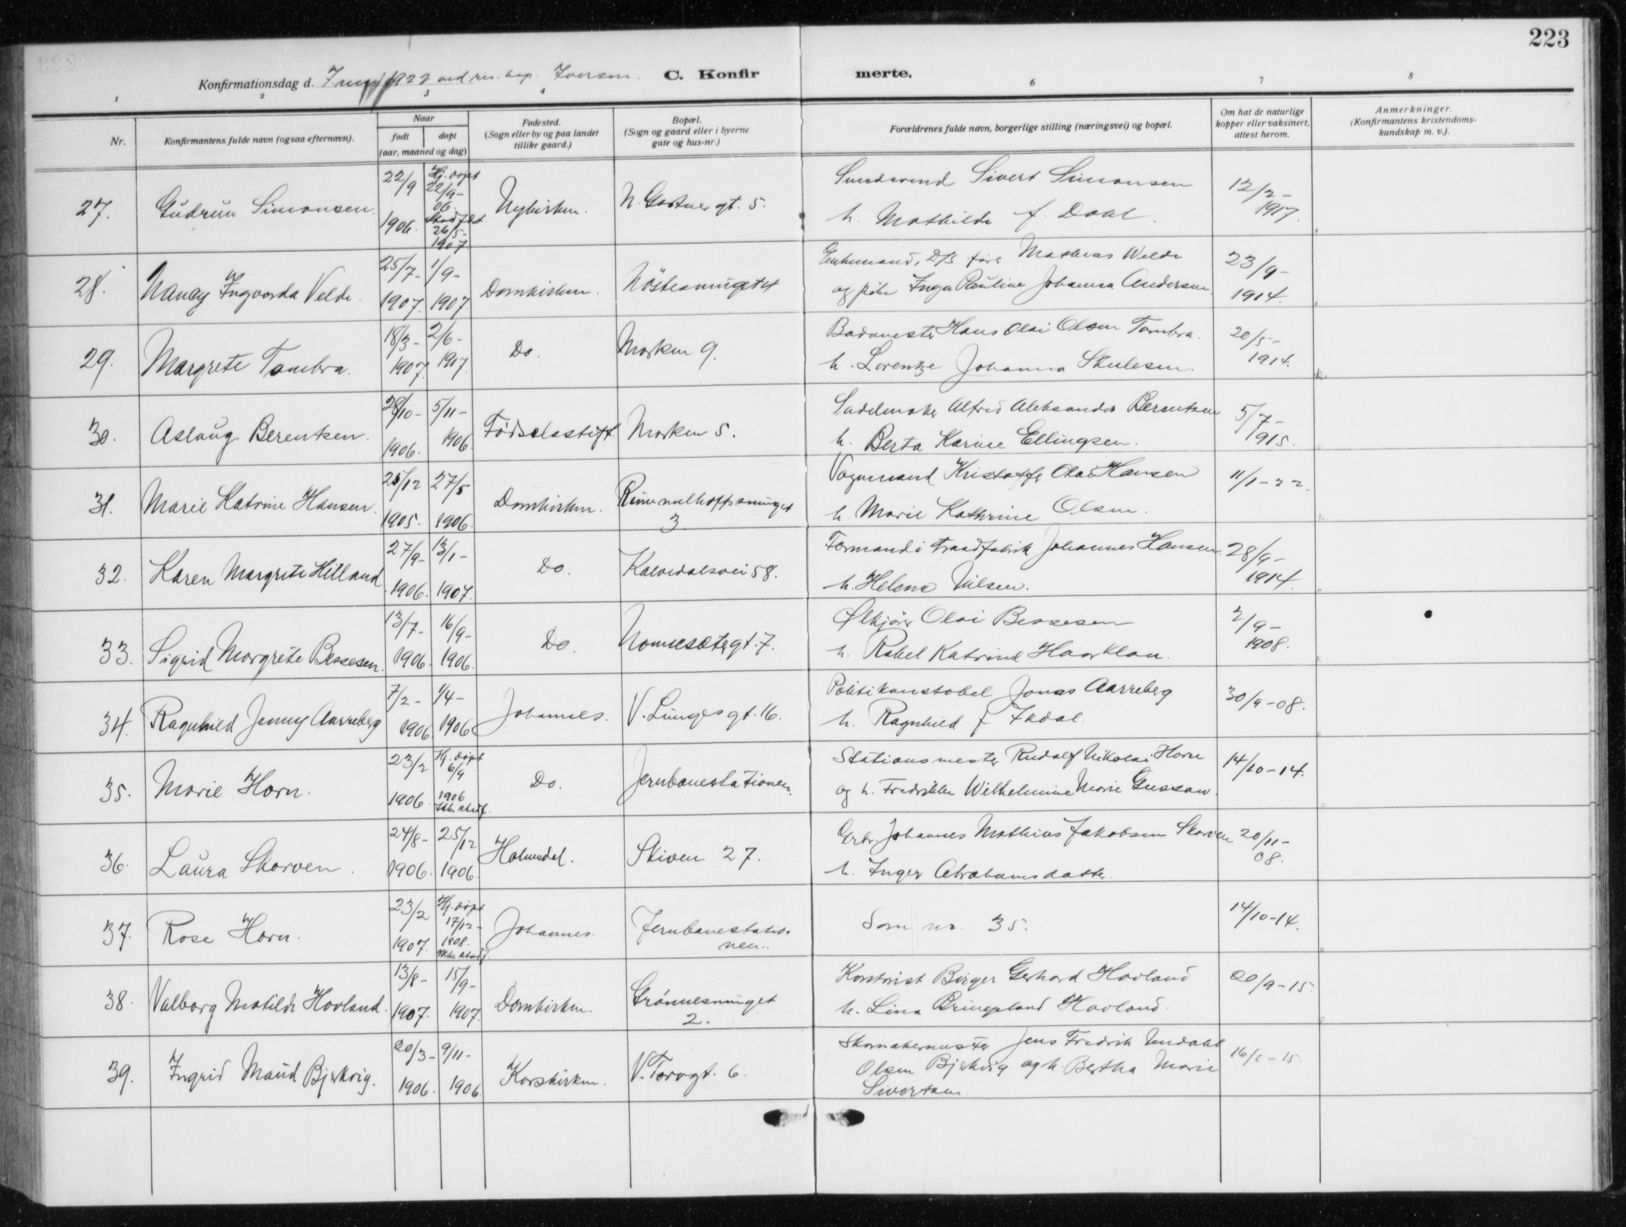 223
Konfirmationsdag d. 7 1922 ved res. kap. Iversen. C. Konfirmerte.
1 2 3 4 6 7 8
Nr.
Konfirmantens fulde navn (ogsaa efternavn).
Naar
født
døpt
(aar, maaned og dag)
Fødested.
(Sogn eller by og paa landet
tillike gaard.)
Bopæl.
(Sogn og gaard eller i byerne
gate og hus-nr.)
Forældrenes fulde navn, borgerlige stilling (næringsvei) og bopæl.
Om hat de naturlige
kopper eller vaksinert,
attest herom.
Anmerkninger.
(Konfirmantens kristendoms-
kundskap m. v.).
27. Gudrun Simonsen. 22/9 1906. Hj. døpt 22/9- 06. 26/5- 1907 Nykirken. gt. 5.
Sivert Simonsen
h. Mathilde f. Daal.
12/2- 1917.
28. Nancy Ingvarda Velde. 25/7- 1907. 1/9- 1907. Domkirken. Nöstesmuget
Mathias Welde
og Inga Pauline Johanna Andersen.
23/9- 1914.
29. Margrete Tombra. 18/3- 1907. 2/6- 1907. Do. Marken 9.
Hans Olai Olsen Tombra.
h. Lorentze Johanna Skulesen.
20/5- 1914.
30. Aslaug Berentsen. 28/10- 1906. 5/11- 1906. Fødselsstift. Marken 5.
Sadelmaker Alfred Aleksander Berentsen
h. Berta Karine Ellingsen.
5/7- 1915.
31. Marie Katrine Hansen. 25/12 1905. 27/5 1906. Domkirken. 3
Vognmand Kristoffer Olai Hansen
h. Marie Kathrine Olsen.
11/1-22.
32. Karen Margrete Hilland 27/9- 1906. 13/1- 1907. Do. Kalvedalsvei 58.
Formand i traadfabrik Johannes Hansen
h. Helene Nilsen.
28/9- 1914.
33. Sigrid Margrete Bessesen. 13/7- 1906. 16/9- 1906. Do. gt. 7.
Ølkjører Olai Bessesen
h. Rakel Katrine
2/9- 1908.
34. Ragnhild Jenny Aarreberg 7/2- 1906. 1/4- 1906 Johannes. V. Lungesgt. 16.
Politikonstabel Jonas Aarreberg
h. Ragnhild f.
30/9-08.
35. Marie Horn. 23/2 1906. Hj. døpt 6/9 1906 Johannes. Jernbanestationen.
Do.
Stationsmester Rudolf Nikolai Horn
og h. Fredrikke Wilhelmine Marie
14/10-14.
36. Laura Skorven. 24/8- 1906. 25/12 1906. Stiven 27.
Johannes Mathias Jakobsen Skorven
h. Inger Abrahamsdatter.
20/11- 08.
37. Rose Horn. 23/2 1907. Hj. døpt 17/12- 1908. Johannes. Jernbanestatio-
nen.
Som nr. 35.
14/10-14.
38. Valborg Matilde Hovland. 13/8- 1907. 15/9- 1907. Domkirken. Grönnesmuget
2.
Birger Gerhard Hovland
h. Lina Bringeland Hovland.
20/9-15.
39. Ingrid Maud Bjerkvig. 20/3- 1906. 9/11- 1906. Korskirken. V. Torvgt. 6.
Skomakermester Jens Fredrik
Olsen Bjerkvig og h. Bertha Marie
Sivertsen.